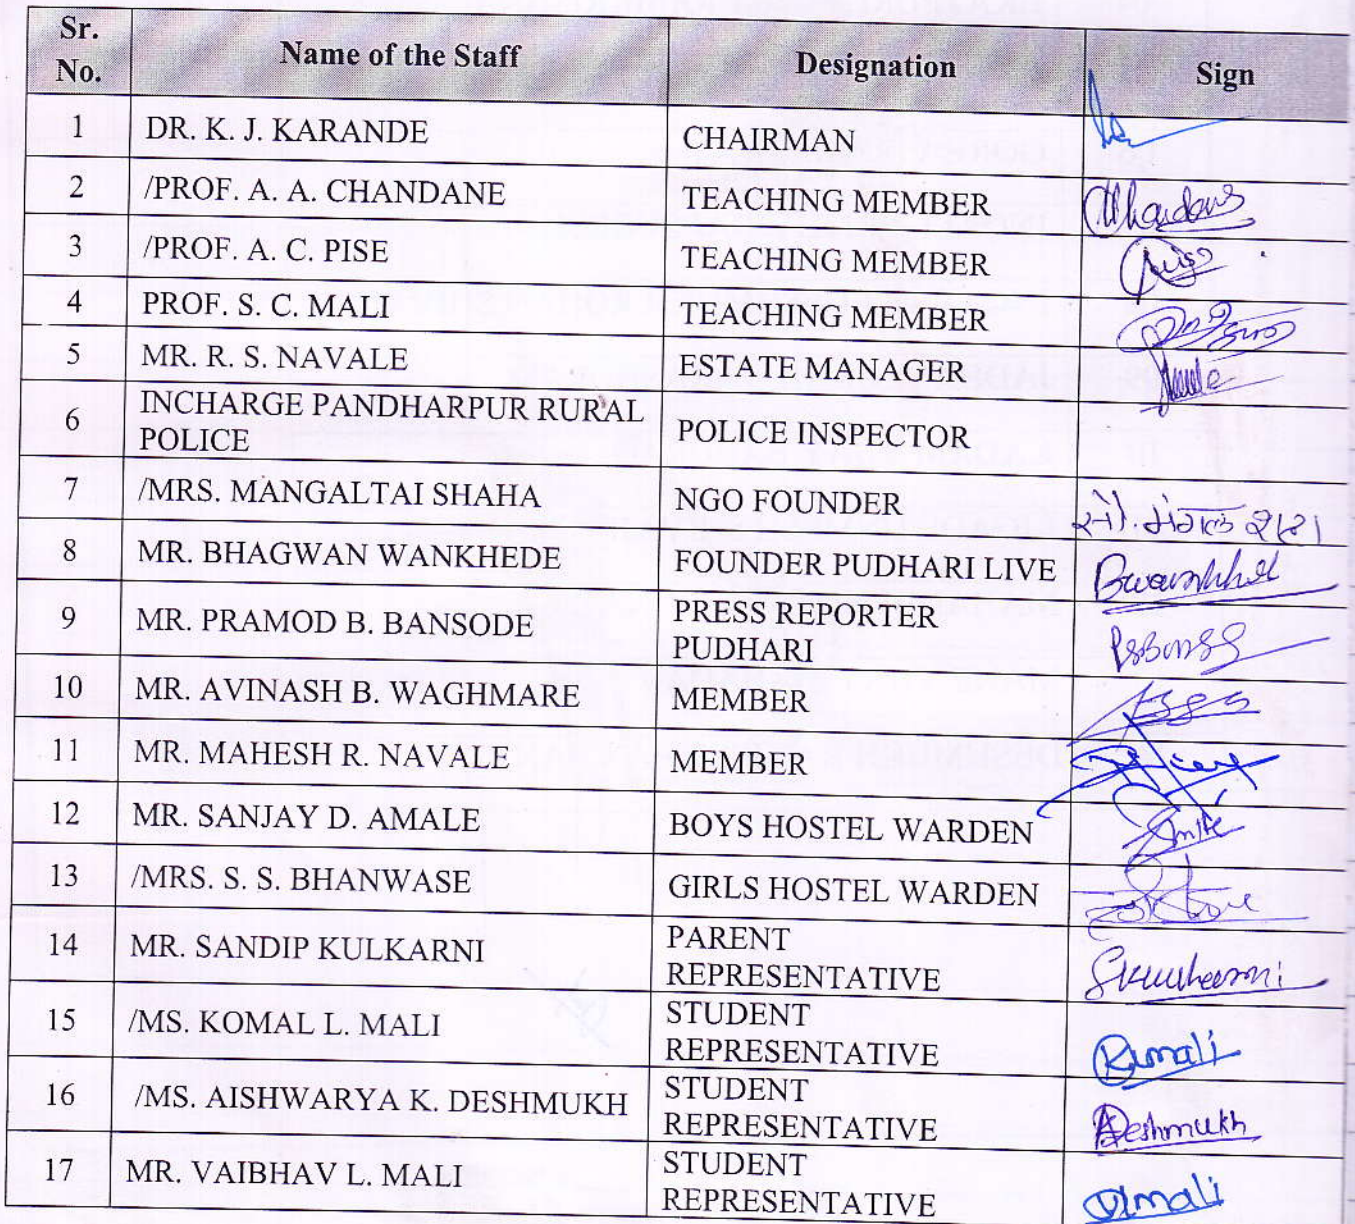 Sr. No. Name of the Staff Designation Sign
1 DR. K. J. KARANDE CHAIRMAN
2 /PROF. A. A. CHANDANE TEACHING MEMBER AAChandane
3 /PROF. A. C. PISE TEACHING MEMBER
4 PROF. S. C. MALI TEACHING MEMBER
5 MR. R. S. NAVALE ESTATE MANAGER
6 INCHARGE PANDHARPUR RURAL
POLICE POLICE INSPECTOR
7 /MRS. MANGALTAI SHAHA NGO FOUNDER सौ. मंगल शहा
8 MR. BHAGWAN WANKHEDE FOUNDER PUDHARI LIVE
9 MR. PRAMOD B. BANSODE PRESS REPORTER
PUDHARI
10 MR. AVINASH B. WAGHMARE MEMBER
11 MR. MAHESH R. NAVALE MEMBER
12 MR. SANJAY D. AMALE BOYS HOSTEL WARDEN
13 /MRS. S. S. BHANWASE GIRLS HOSTEL WARDEN
14 MR. SANDIP KULKARNI PARENT
REPRESENTATIVE
15 /MS. KOMAL L. MALI STUDENT
REPRESENTATIVE
16 /MS. AISHWARYA K. DESHMUKH STUDENT
REPRESENTATIVE ADeshmukh
17 MR. VAIBHAV L. MALI STUDENT
REPRESENTATIVE